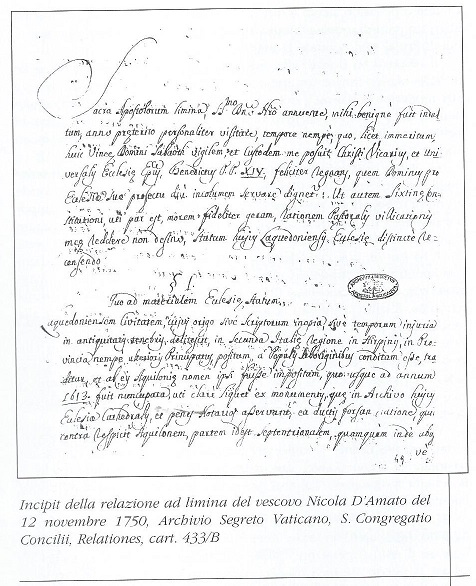 Sacra Apostolorum limina, SSmo Dno Nro annuente, mihi benigne fuit indul
tum, anno præterito personaliter visitare, tempore nempe, quo, licet immeritum
huic Vineæ Domini Sabaoth vigilem, et Custodem me posuit Christi Vicarius, et Uni
versalis Eulesiæ Epus, Benedictus P.P. XIV, feliciter Regnans, quem Dominus pro
Eulesiæ suæ profectu diu incolumem servare dignetur. Ut autem Sixtinæ Con
stitutioni, uti par est, morem fideliter geram, Rationem Pastoralis villicationis
meæ Reddere non desino, statum hujus Laquedoniensis Eulesiæ distincte Re
censendo
§ I.
Quo ad materialem Eulesiæ Statum
Laquedoniensem Civitatem, cujus origo sive Scriptorum inopia, sive temporum injuria
in antiquitatis tenebris delitescit, in Secunda Italiæ Regione in Hirpinis, in Pro
vincia nempe ulterioris Principatus positam, a Populis Aboriginibus conditam esse, tra
ditur, et ab eis Aquilonia nomen ipsi fuisse impositum, quo usque ad annum
1613. fuit nuncupata, uti clare liquet ex monumentis, quæ in Archivo hujus
Eulesiæ Cathedralis, et penes Notarios asservantur, ea ducti forsan ratione, qui
contra Respicit Aquilonem, partem idest septentrionalem, quamquam inde ubq
ve
Incipit della relazione ad limina del vescovo Nicola D'Amato del
12 novembre 1750, Archivio Segreto Vaticano, S. Congregatio
Concilii, Relationes, cart. 433/B